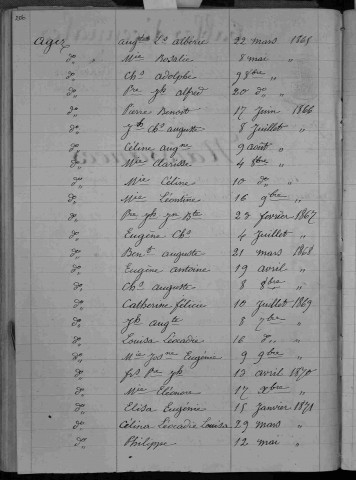 ager augte Ls albéric 22 mars 1865
do Mie Rosalie 8 mai "
do Chs adolphe 9 8bre "
do Pre Jh alfred 20 do "
do Pierre Benoit 17 juin 1866
do Jh Chs auguste 8 juillet "
do Céline augne 9 août "
do Mie Clarisse 4 8bre "
do Mie Céline 10 do "
do Mie Léontine 16 9bre "
do Pre Jh Jn Bte 23 février 1867
do Eugène Chs 4 juillet "
do Bent auguste 21 mars 1868
do Eugène antoine 19 avril "
do Chs auguste 8 8bre "
do Catherine félicie 10 juillet 1869
do Jh augte 8 7bre "
do Louisa Léocadie 16 do "
do Mie Josne Eugénie 9 9bre "
do frs Pre Jh 13 avril 1870
do Mie Eléonore 17 xbre "
do Elisa Eugénie 15 janvier 1871
do Célina Léocadie Louisa 29 mars "
do Philippe 12 mai "